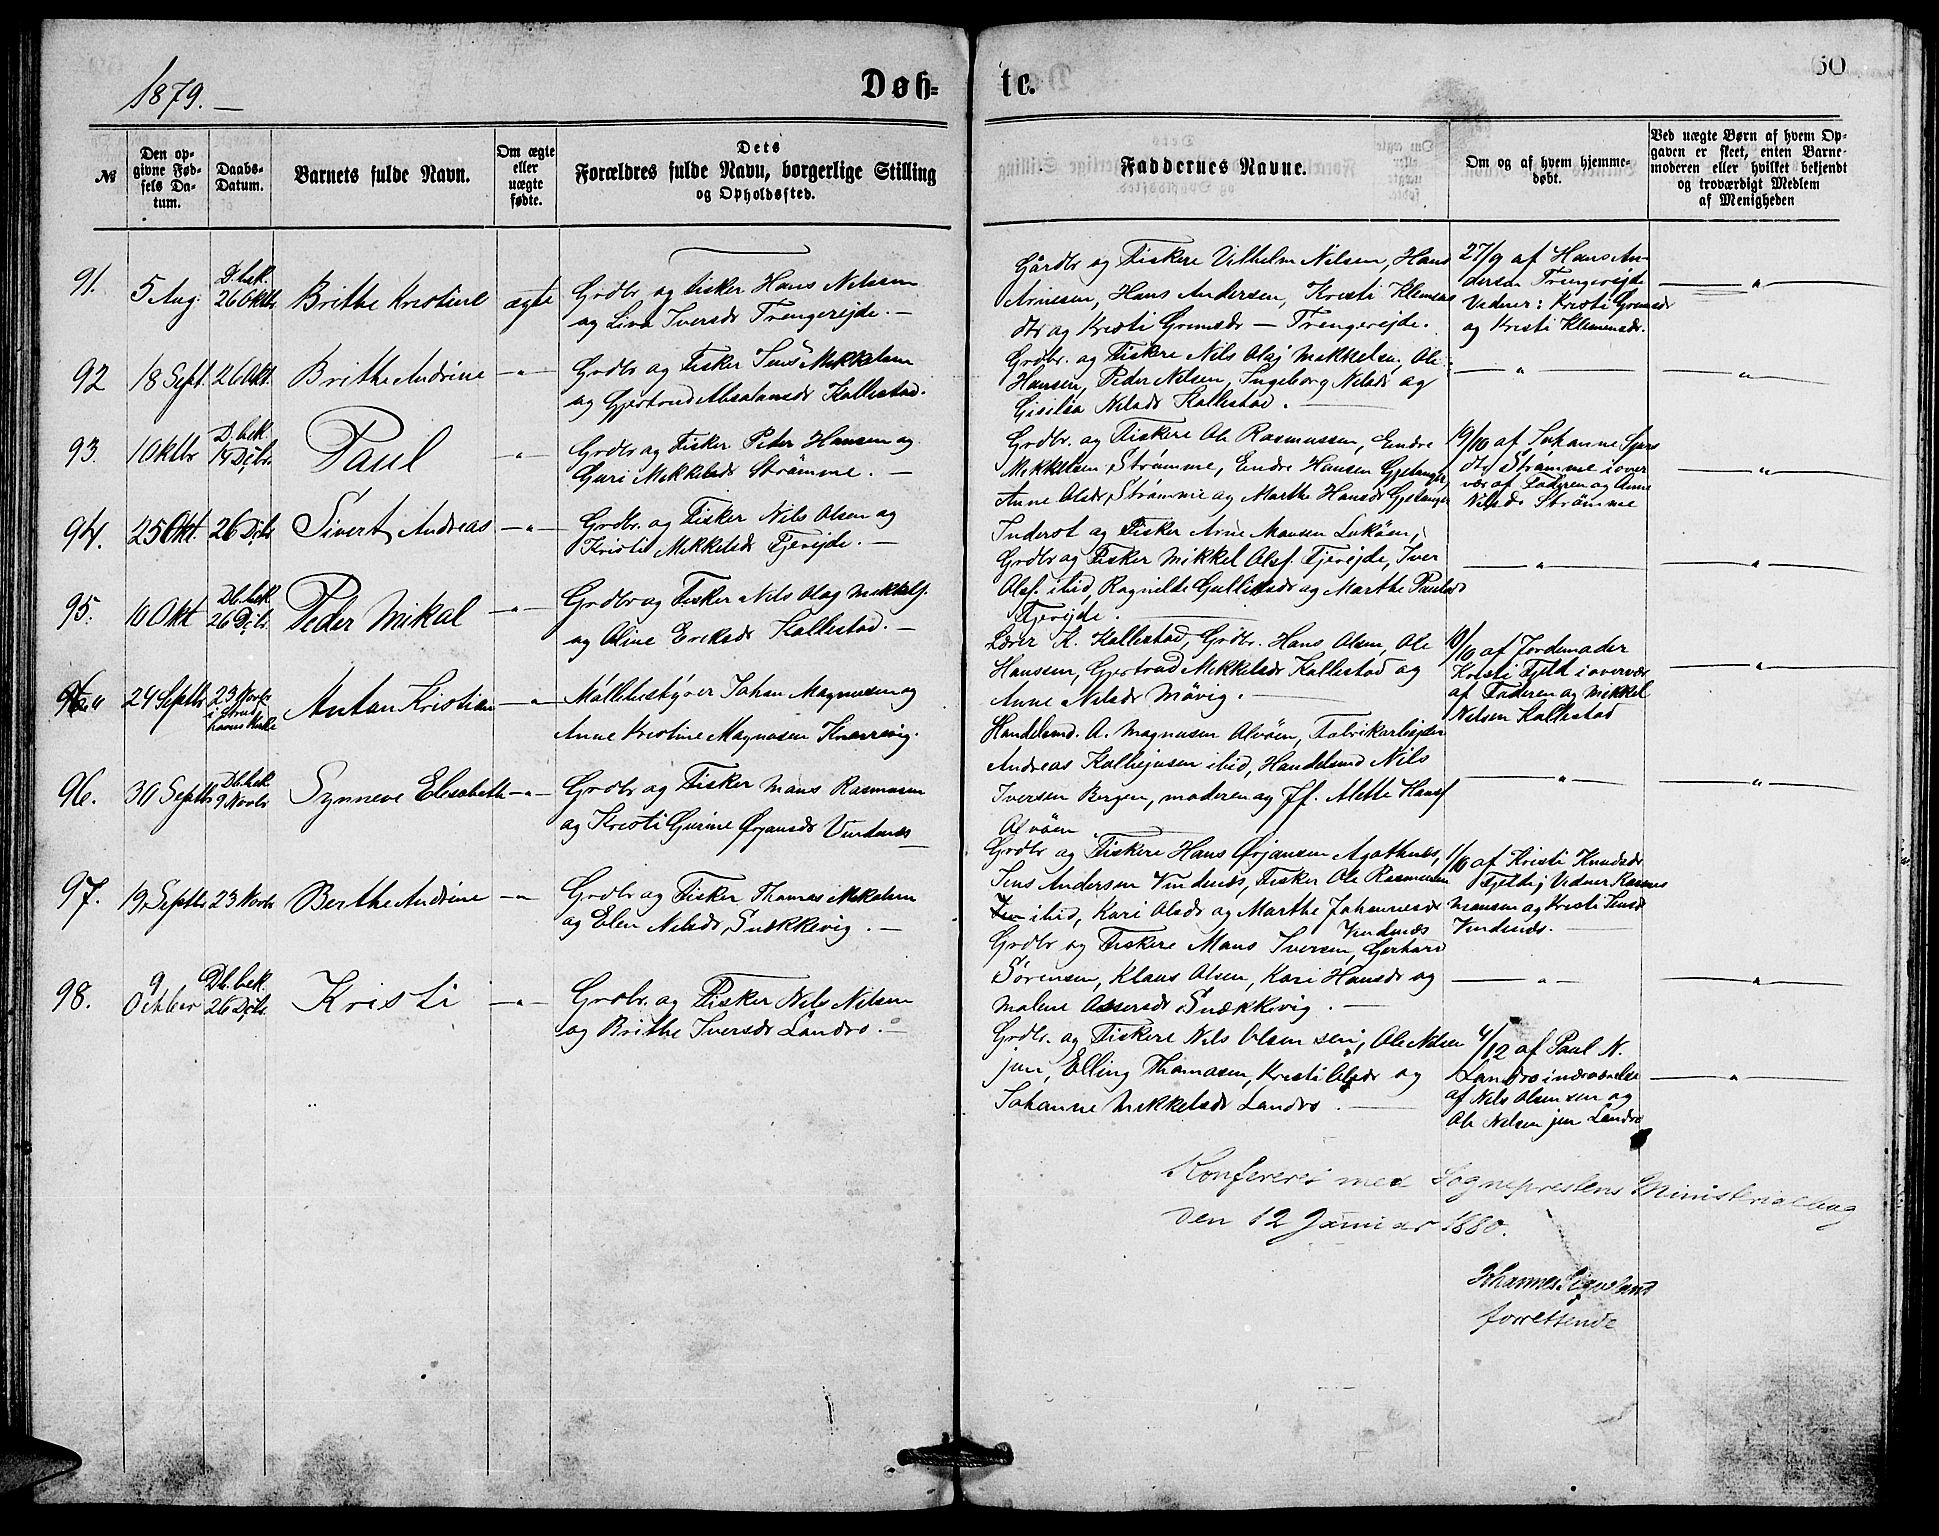 1879.
Døb=
te.
60
№
Den op-
givne Fød-
sels Da-
tum.
Daabs-
Datum.
Barnets fulde Navn.
Om ægte
eller
uægte
fødte.
Dets
Forældres fulde Navn, borgerlige Stilling
og Opholdssted.
Faddernes Navne.
Om og af hvem hjemme-
døbt.
Ved uægte Børn af hvem Op-
gaven er skeet, enten Barne-
moderen eller hvilket bekjendt
og troværdigt Medlem
af Menigheden
91.
5 Aug.
D. bek.
26 Oktbr
Brithe Kristine
ægte
Grdbr og Fisker Hans Nilsen
og Liva Iversdr Trengereide. —
Gårdbr og Fiskere Vilhelm Nilsen, Hans
Arnesen, Hans Andersen, Kristi Klemens
dtr og Kristi Gremsdr — Trengereide.
27/9 af Hans An-
dersen Trengereide
Vidner: Kristi Gremsdr
og Kristi Klemensdr.
— „ —
92
18 Sept.
26 Okt.
Brithe Andrine
— „ —
Grdbr og Fisker Jens Mikkelsen
og Gjertrud Absalonsdr Kallestad.
Grdbr. og Fiskere Nils Olaj Mikkelsen, Ole
Hansen, Peder Nilsen, Ingeborg Nilsdr og
Gisilia Nilsdr Kallestad. —
— „ —
— „ —
93.
1 Oktbr
D. bek.
14 Dcbr.
Paul
— „ —
Grdbr og Fisker Peder Hansen og
Guri Mikkelsdr Strømme. —
Grdbr. og Fiskere Ole Rasmussen, Endre
Mikkelsen Strømme, Endre Hansen Gjetanger,
Anne Olsdr Strømme og Marthe Hansdr Gjetanger
19/10 af Johanne Sjurs
dtr Strømme i over
vær af Faderen og Anne
Nilsdr Strømme
— „ —
94.
25 Okt.
26 Dcbr
Sivert Andreas
— „ —
Grdbr. og Fisker Nils Olsen og
Kristi Mikkelsdr Fjereide. —
Inderst og Fisker Arne Monsen Lokøen,
Grdbr og Fisker Mikkel Olsf. Fjereide, Iver
Olsf. ibid, Ragnilde Gulliksdr og Marthe Paulsdr
Fjereide. —
— „ —
— „ —
95.
10 Okt
Db. bek.
26 Dcbr.
Peder Mikal
— „ —
Grdbr og Fisker Nils Olaj Mikkelsf.
og Oline Eriksdr Kallestad. —
Lærer K. Kallestad, Grdbr. Hans Olsen, Ole
Hanssen, Gjertrud Mikkelsdr Kallestad og
Anne Nilsdr Møvig. —
/10 af Jordemoder
Kristi Fjeld i overvær
af Faderen og Mikkel
Nilsen Kallestad
— „ —
24 Septbr
23 Novbr
i Strud-
havns Kirke
Anton Kristian
— „ —
Møllebestyrer Johan Magnusen og
Anne Kristine Magnusen Knarrevig.
Handelsmd. A. Magnusen Alvøen, Fabrikarbeider
Andreas Kallejusen ibid, Handelsmd Nils
Iversen Bergen, moderen og Jf. Mette Hansf
Alvøen. —
— „ —
— „ —
96.
30 Septbr
Db. bek.
9 Novbr
Synneve Elisabeth
— „ —
Grdbr og Fisker Mons Rasmusen
og Kristi Gurine Ørjansdr Vindenes
Grdbr og Fiskere Hans Ørjansen Agotnes,
Jens Andersen Vindenes, Fisker Ole Rasmusen
ibid, Kari Olsdr og Marthe Johannesdr
Vindenes
1/10 af Kristi Knudsdr
Fjeld; Vidner Rasmus
Monsen og Kristi Jensdr
Vindenes. —
97.
19 Septbr
23 Novbr
Berthe Andrine
— „ —
Grdbr og Fisker Thomas Mikalsen
og Elen Nilsdr Snekkevig. —
Grdbr og Fiskere Mons Iversen, Gerhard
Sørensen, Klaus Olsen, Kari Hansdr og
Malene Assersdr Snækkevig. —
— „ —
— „ —
98.
9
October
Db. bek.
26 Dcbr.
Kristi
— „ —
Grdbr. og Fisker Nils Nilsen
og Brithe Iversdr Landro. —
Grdbr. og Fiskere Nils Olsen sen, Ole Nilsen
jun, Elling Thomasen, Kristi Olsdr og
Johanne Mikkelsdr Landro. —
4/12 af Paul N.
Landro i nærværelse
af Nils Olsen sen og
Ole Nilsen jun Landro
— „ —
Konfereret med Sogneprestens Ministerialbog
den 12 Januar 1880.
Johannes Sigveland
forrettende